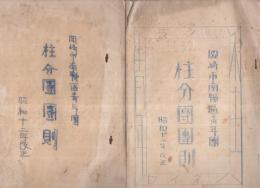 岡崎市南部區青年團
柱分團團則
昭和十二年改正
岡崎市南部區青年團
柱分團團則
昭和十二年改正